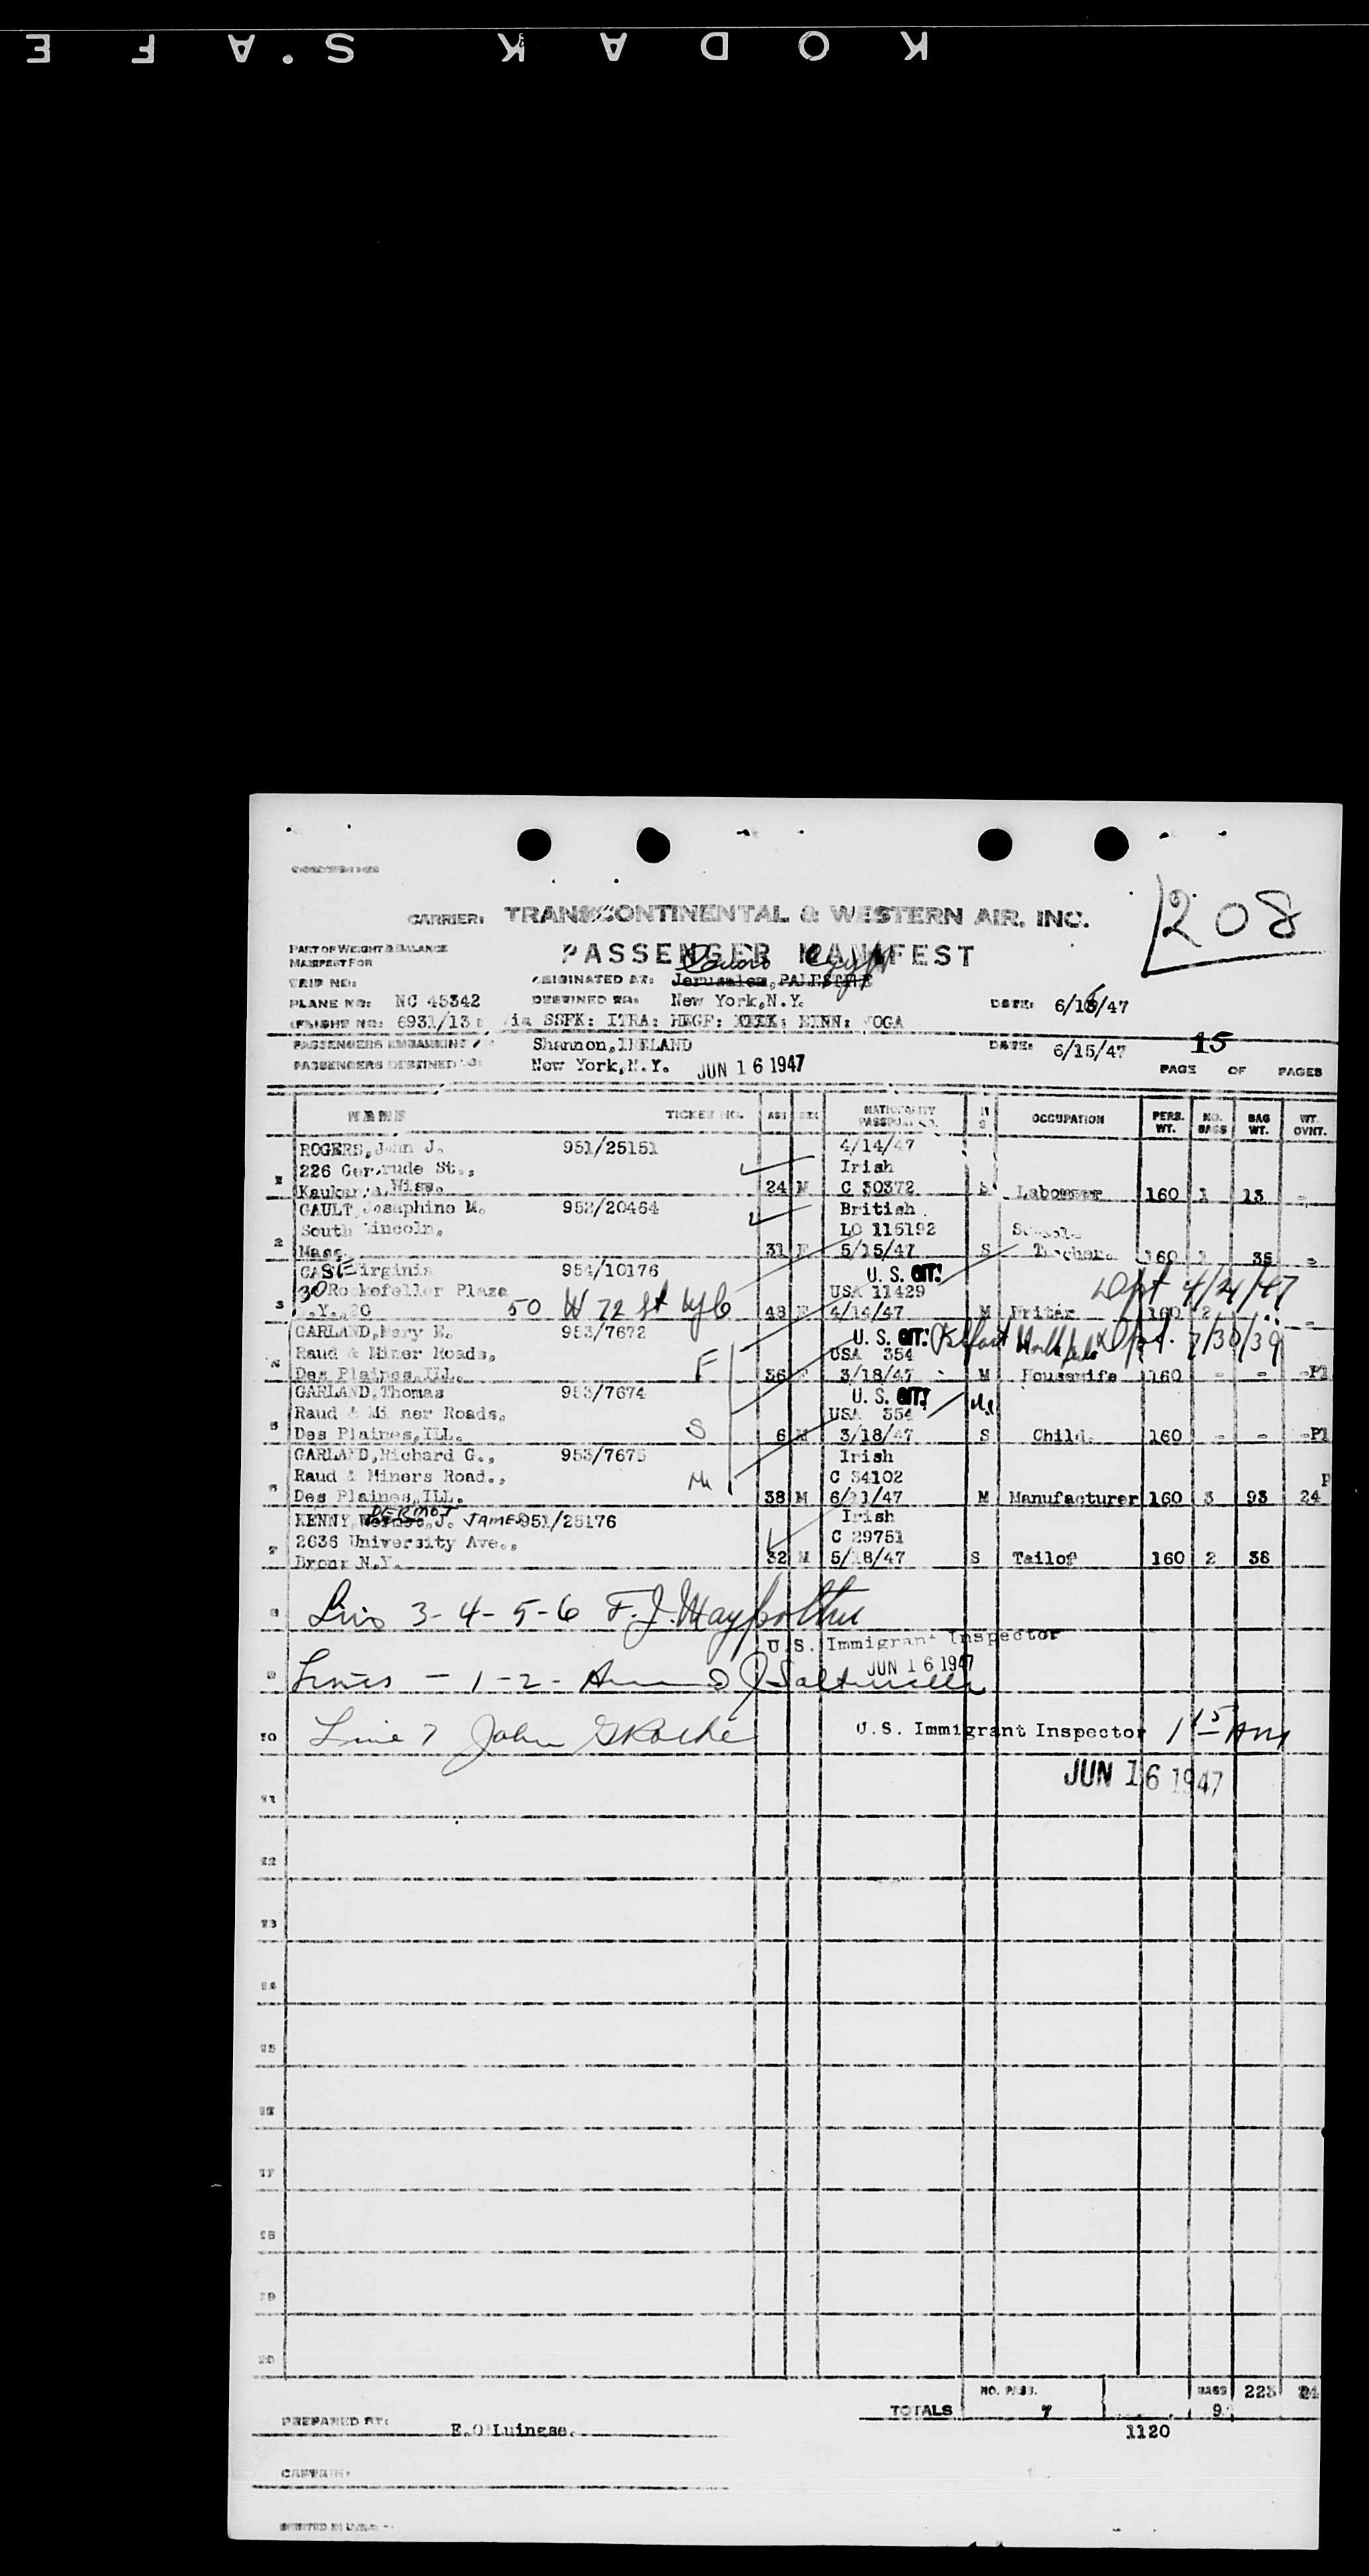 KODAK SAFE
CARRIER: TRANSCONTINENTAL & WESTERN AIR, INC.
208
PART OF WEIGHT & BALANCE
PASSENGER MANIFEST
MANIFEST FOR
TRIP NO: ORIGINATED AT: Jerusalem, PALESTINE
PLANE NO: NC 45342 DESTINED TO: New York,N.Y. DATE: 6/16/47
6931/13 via SSFK: ITRA: HEGF: EINN: VOGA
PASSENGERS EMBARKING Shannon,IRELAND DATE: 6/15/47 15
PASSENGERS DESTINED New York,N.Y. JUN 16 1947 PAGE OF PAGES
NAME TICKET NO. AGE SEX NATIONALITY PASSPORT NO. M S OCCUPATION PERS. WT. NO. BAGS BAG WT. WT. OVNT.
ROGERS,John J. 951/25151 4/14/47
226 Gertrude St., Irish
1 Kaukauna,Wiss. 24 M C 30372 S Labourer 160 1 13 -
GAULT,Josephine M. 952/20464 British
South Lincoln, LO 115192 School
2 Mass. 31 F 5/15/47 S Teacher. 160 1 35 -
Virginia 954/10176 U. S. CIT.
30 Rockefeller Plaza USA 11429 Dept 4/21/47
3 N.Y. 20 50 W 72 St nyc 48 F 4/14/47 M Writer 160 2 -
GARLAND,Mary E. 953/7672 U. S. CIT. Dept. 7/30/39
Raud & Miner Roads, F USA 354
4 Des Plaines,ILL. 36 F 3/18/47 M Housewife 160 - - -Pl
GARLAND,Thomas 953/7674 U. S. CIT.
Raud & Mi ner Roads, S USA 354
5 Des Plaines,ILL. 6 M 3/18/47 S Child. 160 - - -Pl
GARLAND,Richard G., 953/7675 Irish
Raud & Miners Road., M C 34102 P
6 Des Plaines,ILL. 38 M 6/11/47 M Manufacturer 160 3 93 24
KENNY, DERMOT J. JAMES 951/25176 Irish
2636 University Ave., C 29751
7 Bronx N.Y. 32 M 5/18/47 S Tailor 160 2 38
8 3-4-5-6 F.J.
U.S. Immigrant Inspector
JUN 16 1947
9 Lines - 1-2-
10 Line 7 John U.S. Immigrant Inspector 1 15 AM
JUN 16 1947
11
12
13
14
15
16
17
18
19
20
NO. PASS. BAGS 223 24
TOTALS 7 9
PREPARED BY: E.O'Luingse. 1120
CAPTAIN: